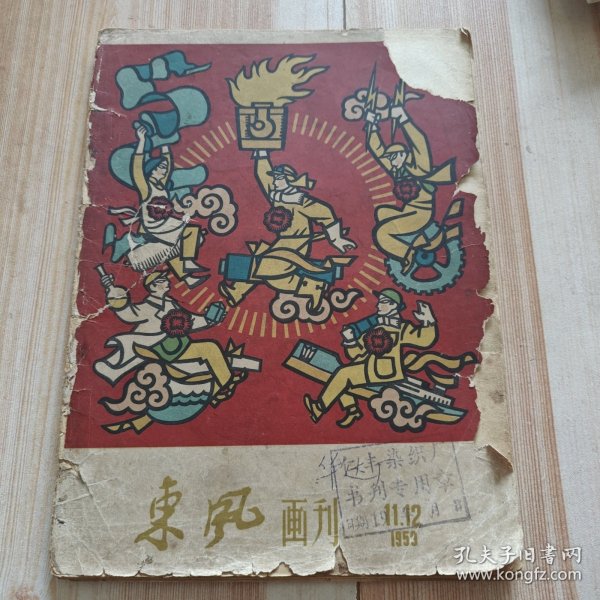 東风 画刊 11.12
1953
染织厂
书刊专用章
日期19 月 日
孔夫子旧书网
www.kongfz.com